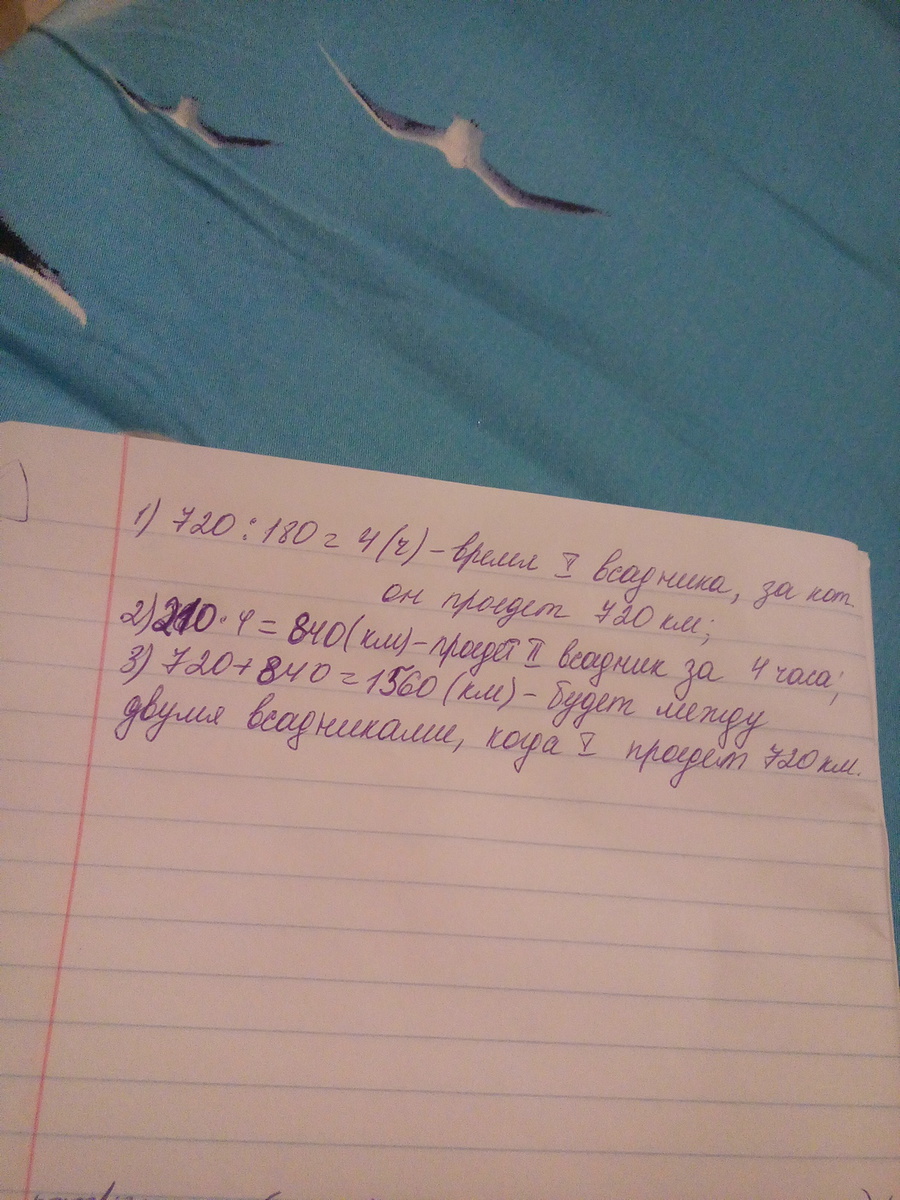 1) 720 : 180 = 4 (ч) – время I всадника, за кот.
он проедет 720 км;
2) 210 · 4 = 840 (км) – проедет II всадник за 4 часа;
3) 720 + 840 = 1560 (км) – будет между
двумя всадниками, когда I проедет 720 км.